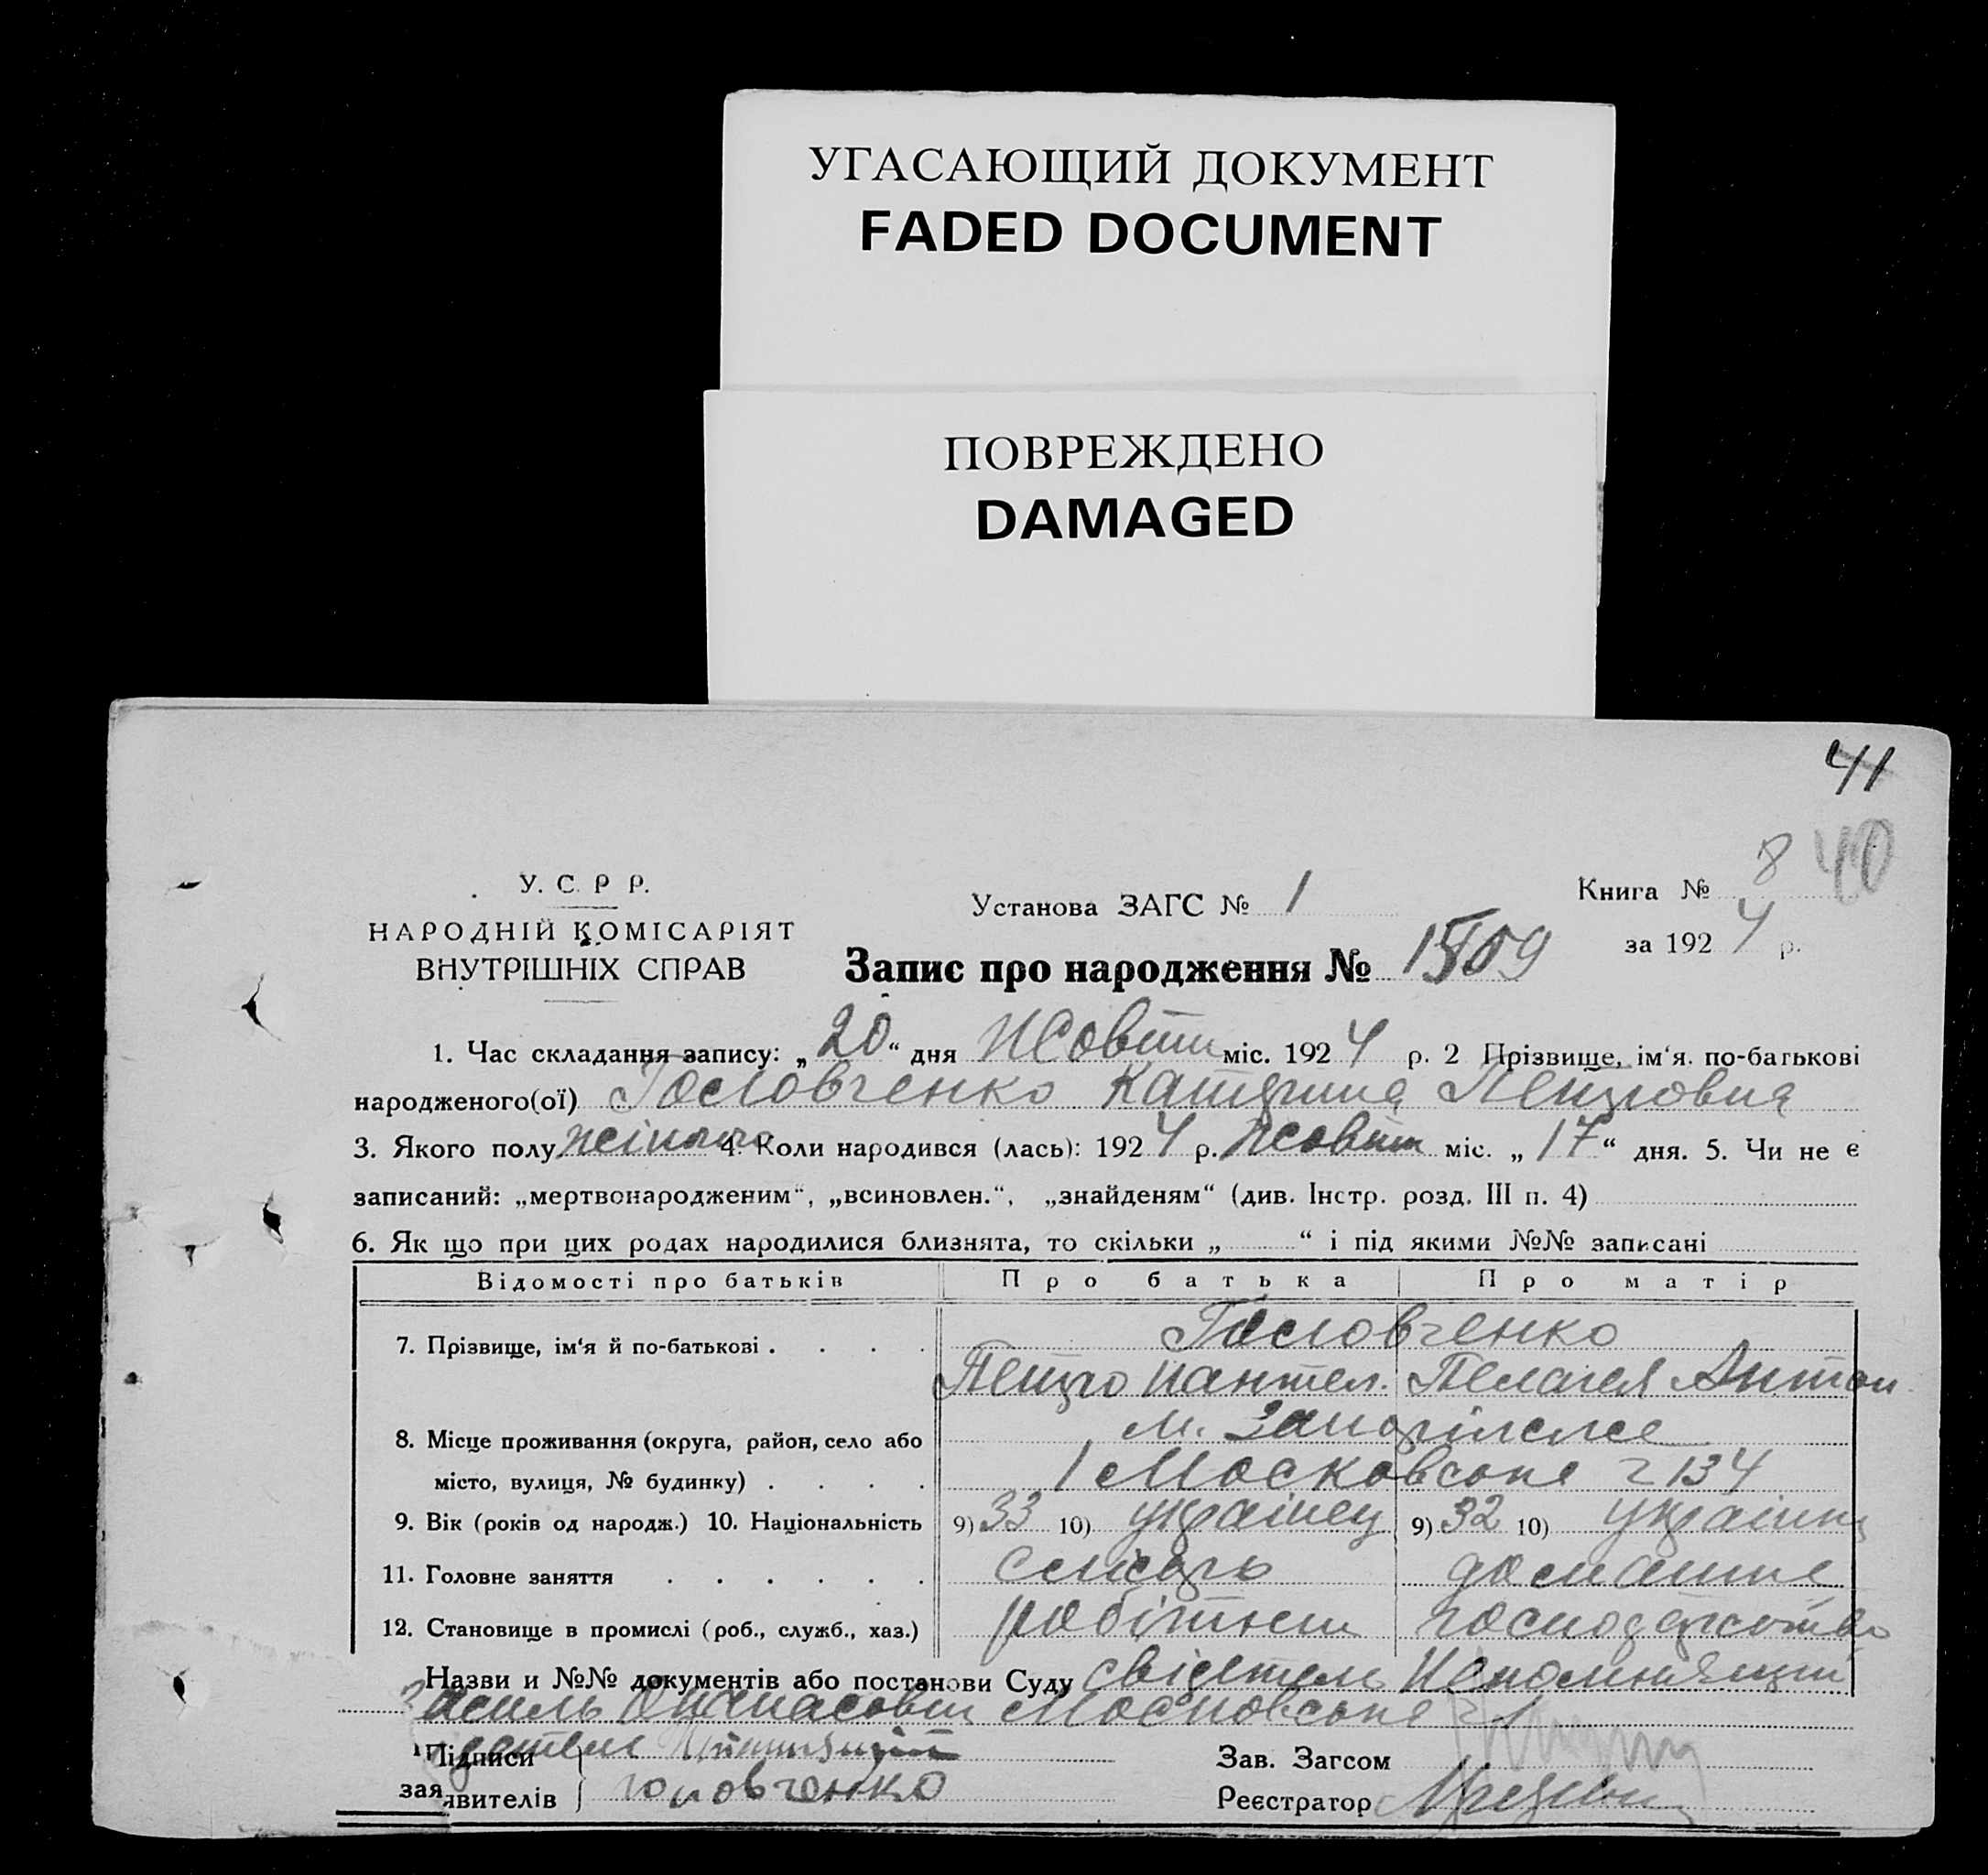 УГАСАЮЩИЙ ДОКУМЕНТ
FADED DOCUMENT
ПОВРЕЖДЕНО
DAMAGED
41
У. С. Р Р.
НАРОДНІЙ КОМІСАРІЯТ
ВНУТРІШНІХ СПРАВ
Установа ЗАГС № 1
Книга № 8 40
за 1924 р.
Запис про народження № 1509
1. Час складання запису: „20“ дня Жовтн міс. 1924 р. 2 Прізвище, ім‘я. по-батькові
народженого(ої) Головченко Катерина Петровна
3. Якого полу жіночо 4. Коли народився (лась): 1924 р. Жовтн міс. „17“ дня. 5. Чи не є
записаний: „мертвонародженим“, „всиновлен.“, „знайденям“ (див. Інстр. розд. III п. 4)
6. Як що при цих родах народилися близнята, то скільки „ “ і під якими №№ записані
Відомості про батьків Про батька Про матір
7. Прізвище, ім‘я й по-батькові . . . . Головченко
Петро Пантел. Пелагея Антон
8. Місце проживання (округа, район, село або м. Запоріжже
місто, вулиця, № будинку) . . . . 1 Московська 134
9. Вік (років од народж.) 10. Національність 9) 33 10) українец 9) 32 10) українка
11. Головне заняття . . . . . . слюсарь домашне
12. Становище в промислі (роб., служб., хаз.) робітник господарство
Назви и №№ документів або постанови Суду свідетели Непомнящий
Василь Опанасович Московська
Підписи
заявителів } Головченко
Зав. Загсом
Реєстратор